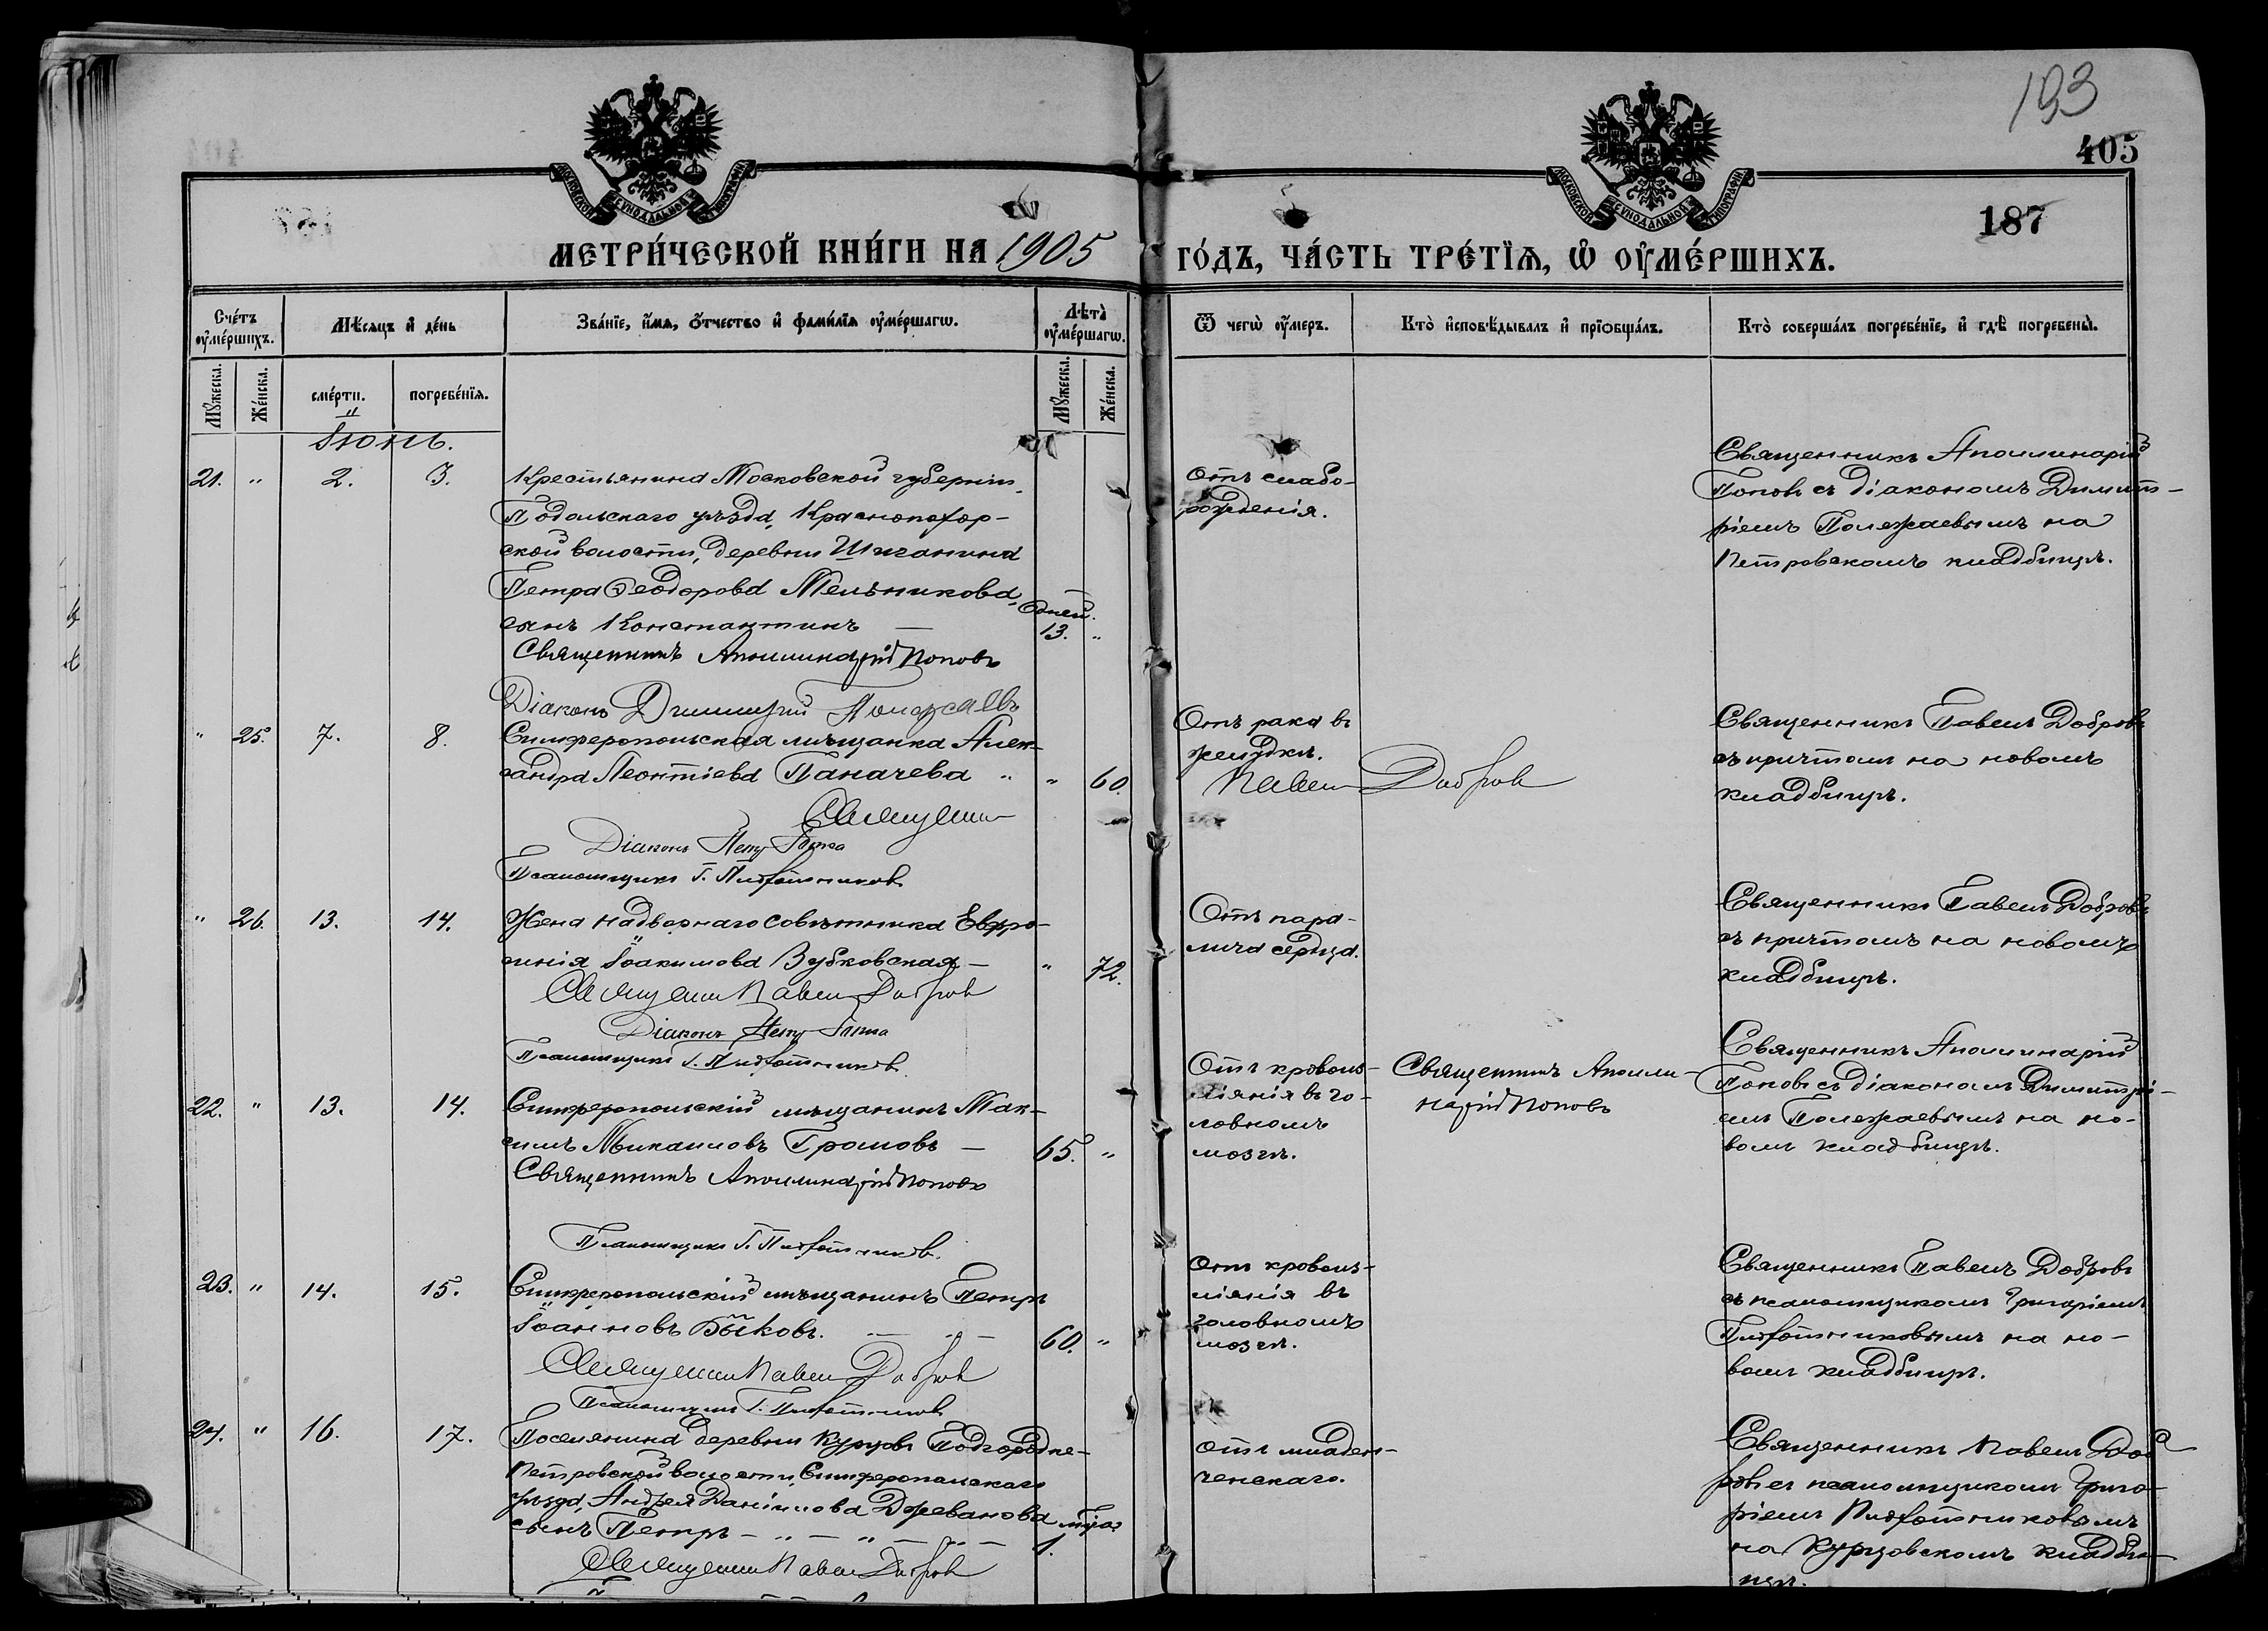 193
405
187
МОСКОВСКОЙ СѴНОДАЛЬНОЙ ТИПОГРАФІИ
МОСКОВСКОЙ СѴНОДАЛЬНОЙ ТИПОГРАФІИ
МЕТРИ́ЧЕСКОЙ КНИ́ГИ НА 1905 ГО́ДЪ, ЧА́СТЬ ТРЕ́ТЇѦ, Ѡ҆ ОУ҆МЕ́РШИХЪ.
Сче́тъ оу҆ме́ршихъ.
Мѣ́сяцъ и҆ де́нь
Зва́нїе, и҆́мѧ, ѻ҆́тчество и҆ фами́лїѧ оу҆ме́ршагѡ.
Лѣ́та оу҆ме́ршагѡ.
Ѿ чегѡ̀ оу҆́меръ.
Кто̀ и҆сповѣ́дывалъ и҆ прїѡбща́лъ.
Кто̀ соверша́лъ погребе́нїе, и҆ гдѣ̀ погребены̀.
Мꙋ́жеска.
Же́нска.
сме́рти.
погребе́нїѧ.
Мꙋ́жеска.
Же́нска.
Іюнь.
21. " 2. 3.
Крестьянина Московской губерніи,
Подольскаго уѣзда, Краснопахор-
ской волости, деревни Шиганина
Петра Ѳеодорова Мельникова,
сынъ Константинъ —
дней.
13. "
Священникъ Аполлинарій Поповъ
Діаконъ Димитрій Полежаевъ
Отъ слабо-
рожденія.
Священникъ Аполлинарій
Поповъ съ діакономъ Димит-
ріемъ Полежаевымъ на
Петровскомъ кладбищѣ.
" 25. 7. 8.
Симферопольская мѣщанка Алек-
сандра Леонтіева Паначева "
" 60.
Священникъ
Діаконъ Петръ
Псаломщикъ Г.
Отъ рака въ
желудкѣ.
Павелъ Добровъ
Священникъ Павелъ Добровъ
съ причтомъ на новомъ
кладбищѣ.
" 26. 13. 14.
Жена надворнаго совѣтника Евфро-
синія Іоакимова Зубковская —
" 72.
Священникъ Павелъ Добровъ
Діаконъ Петръ
Псаломщикъ Г.
Отъ пара-
лича сердца.
Священникъ Павелъ Добровъ
съ причтомъ на новомъ
кладбищѣ.
22. " 13. 14.
Симферопольскій мѣщанинъ Мак-
симъ Михаиловъ Громовъ —
65. "
Священникъ Аполлинарій Поповъ
Псаломщикъ Г.
Отъ кровоиз-
ліянія въ го-
ловномъ
мозгѣ.
Священникъ Аполли-
нарій Поповъ
Священникъ Аполлинарій
Поповъ съ діакономъ Димитрі-
емъ Полежаевымъ на но-
вомъ кладбищѣ.
23. " 14. 15.
Симферопольскій мѣщанинъ Петръ
Іоанновъ Быковъ. — " —
60. "
Священникъ Павелъ Добровъ
Псаломщикъ Г.
Отъ кровоиз-
ліянія въ
головномъ
мозгѣ.
Священникъ Павелъ Добровъ
съ псаломщикомъ Григоріемъ
на но-
вомъ кладбищѣ.
24. " 16. 17.
Поселянина деревни Курцовъ Подгородне-
Петровской волости, Симферопольскаго
уѣзда, Андрея Даніилова Дожеванова
сынъ Петръ — " — " — " —
1.
Священникъ Павелъ Добровъ
Отъ младен-
ческаго.
Священникъ Павелъ Доб-
ровъ съ псаломщикомъ Григо-
ріемъ
на Курцовскомъ кладби-
щѣ.